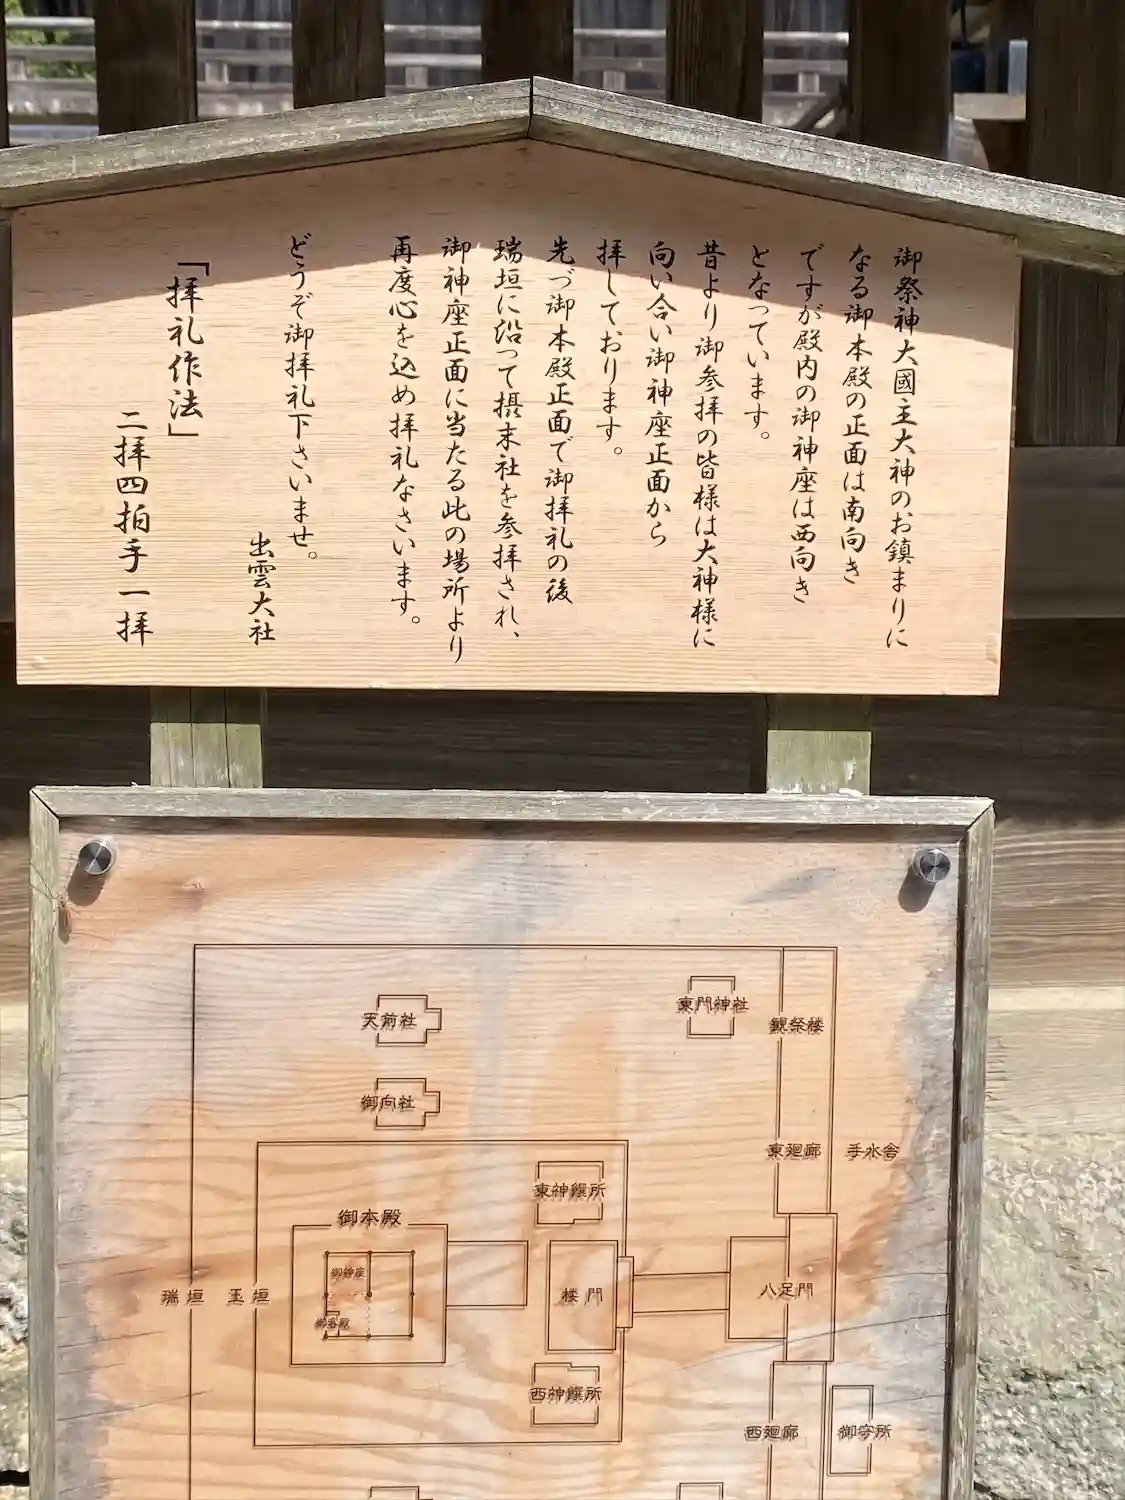 御祭神大國主大神のお鎮まりに
なる御本殿の正面は南向き
ですが殿内の御神座は西向き
となっています。
昔より御参拝の皆様は大神様に
向い合い御神座正面から
拝しております。
先づ御本殿正面で御拝礼の後
瑞垣に沿って摂末社を参拝され、
御神座正面に当たる此の場所より
再度心を込め拝礼なさいます。
どうぞ御拝礼下さいませ。
出雲大社
「拝礼作法」
二拝四拍手一拝
天前社
東門神社
観祭楼
御向社
東廻廊
手水舎
東神饌所
御本殿
御神座
瑞垣
玉垣
楼門
八足門
御客殿
西神饌所
西廻廊
御守所